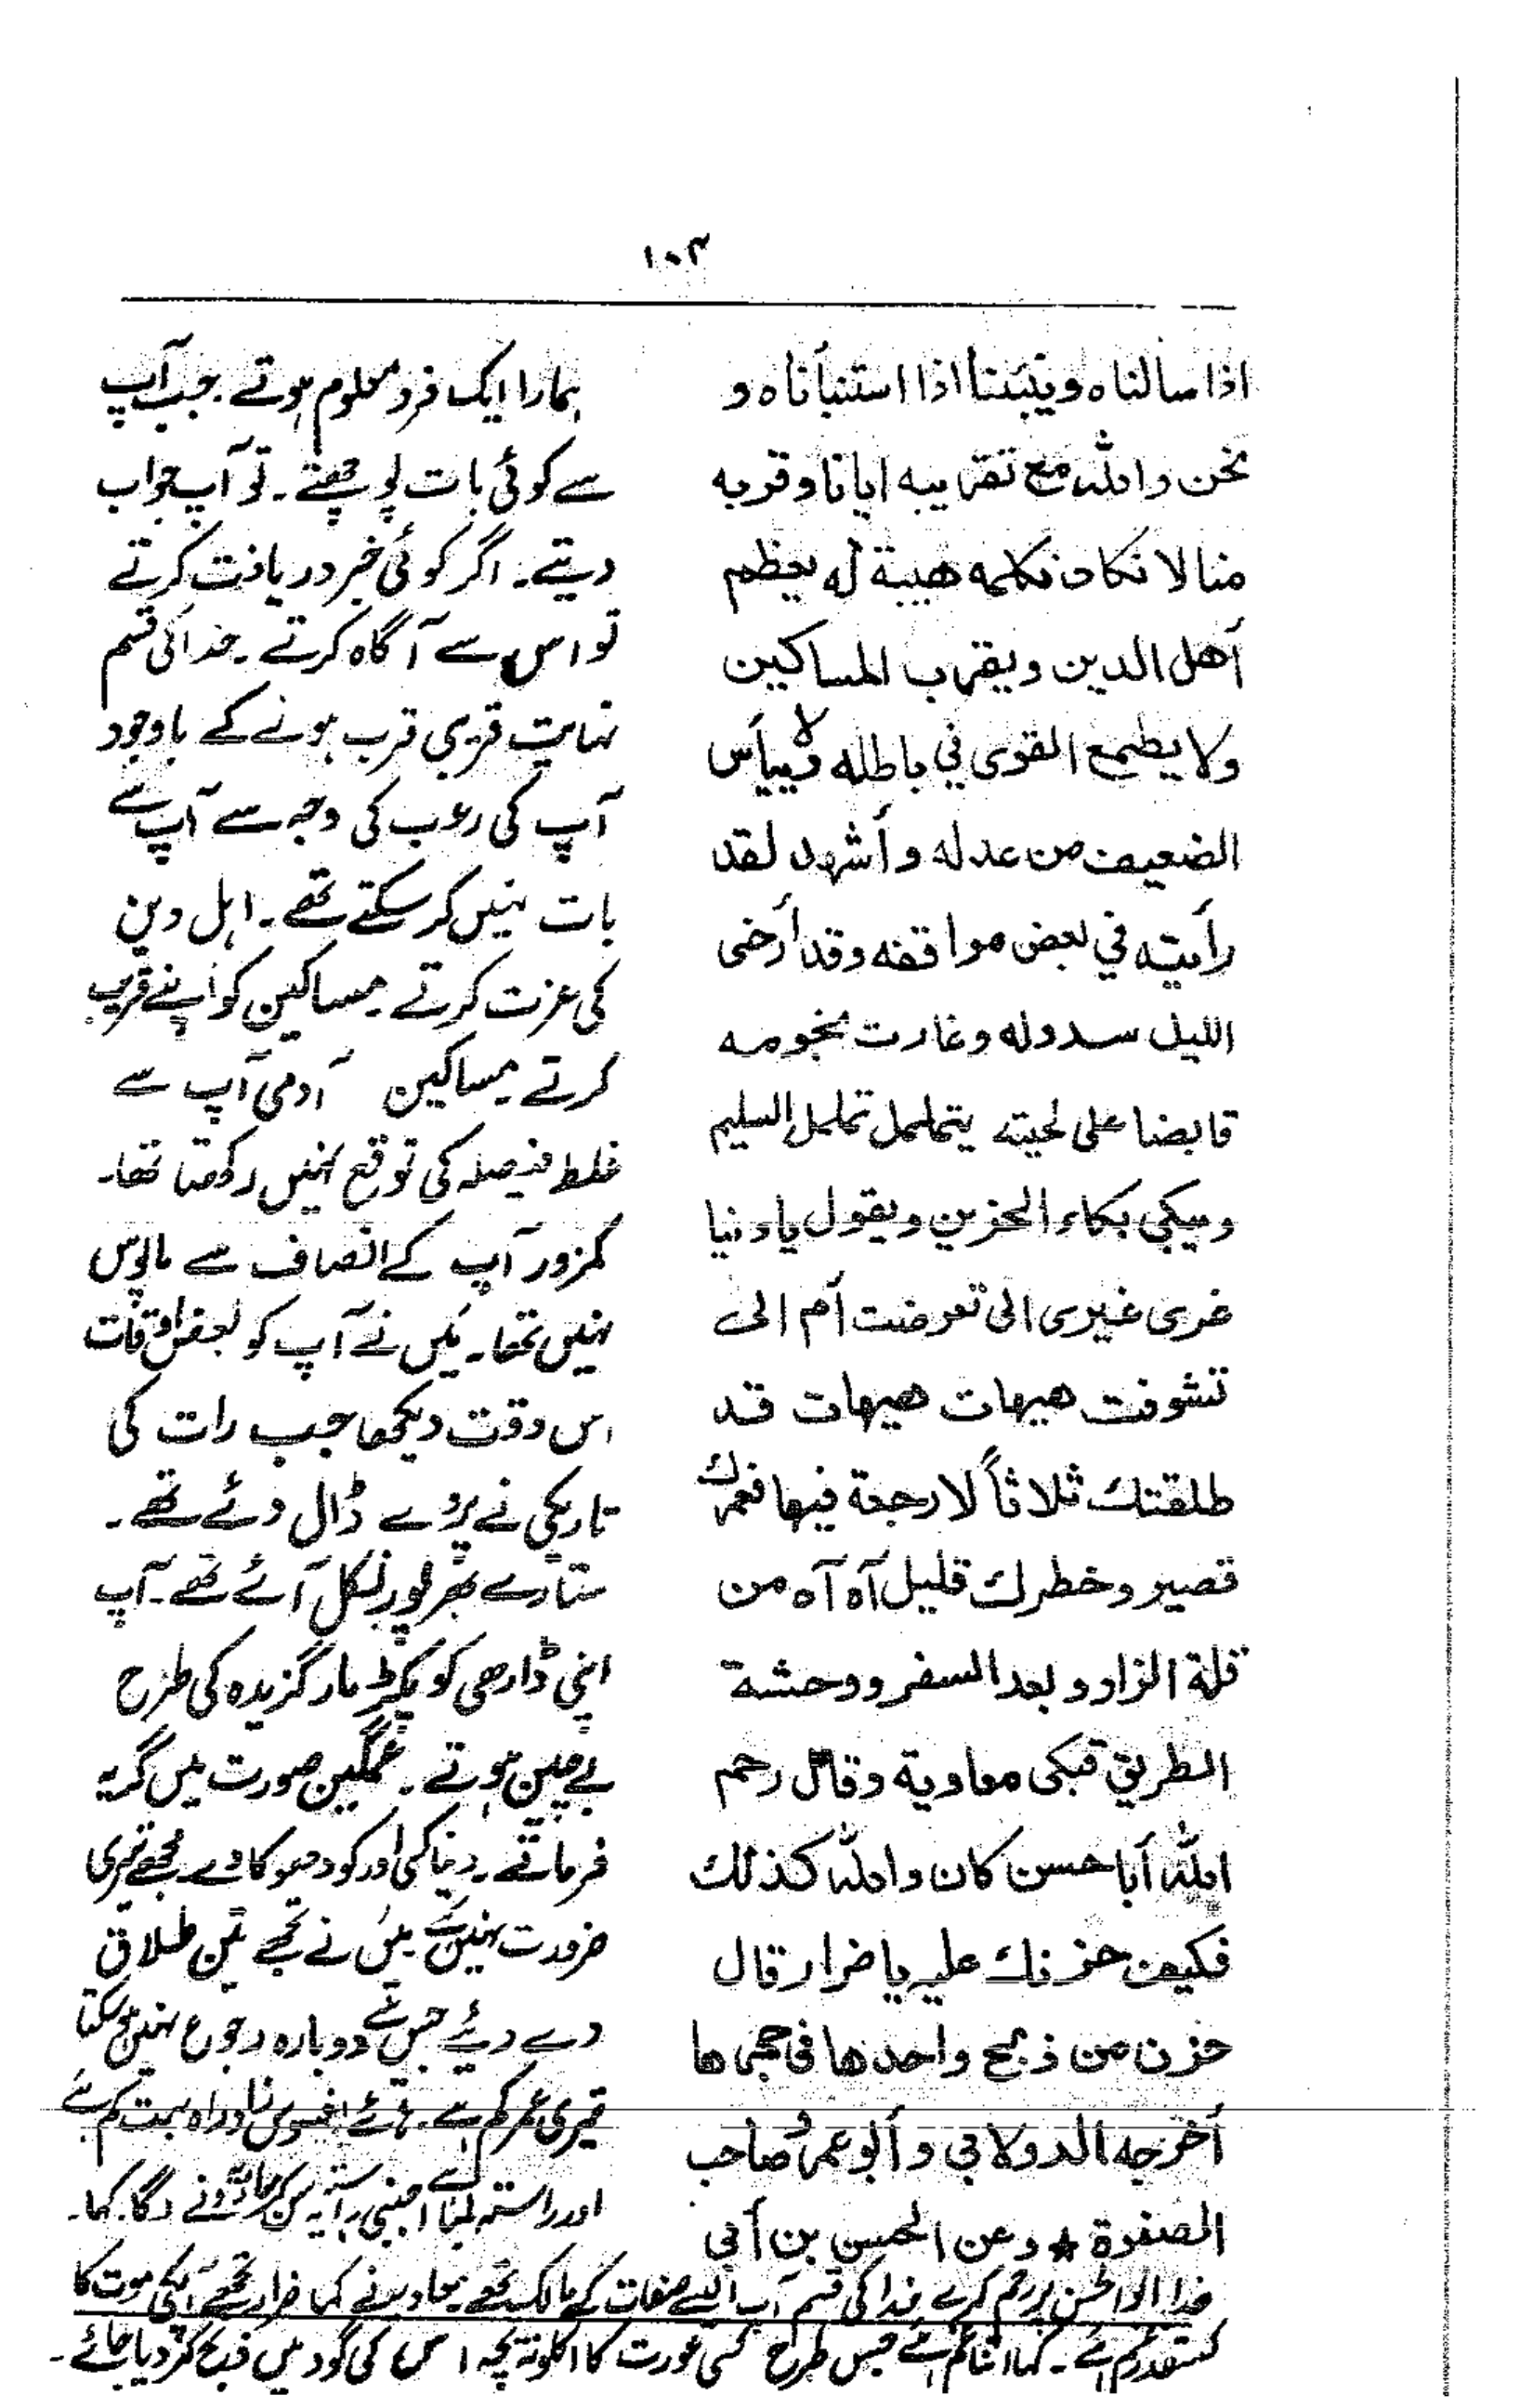 ۱۰۳
اذا سالناه وينبئنا اذا استنبأناه و
نحن والله مع تقريبه ايانا وقربه
منا لا نكاد نكلمه هيبة له يعظم
أهل الدين ويقرب المساكين
ولا يطمع القوى في باطله ولا ييأس
الضعيف من عدله وأشهد لقد
رأيته في بعض مواقفه وقد أرخى
الليل سدوله وغارت نجومه
قابضا على لحيته يتململ تململ السليم
ويبكي بكاء الحزين ويقول يا دنيا
غرى غيرى الى تعرضت أم الى
تشوفت هيهات هيهات قد
طلقتك ثلاثاً لا رجعة فيها فعمرك
قصير وخطرك قليل آه آه من
قلة الزاد وبعد السفر ووحشة
الطريق فبكى معاوية وقال رحم
الله أبا حسن كان والله كذلك
فكيف حزنك عليه يا ضرار قال
حزن من ذبح واحدها في حجرها
أخرجه الدولابي وأبو عمر وصاحب
الصفوة ★ وعن الحسن بن أبي
ہمارا ایک فرد معلوم ہوتے۔ جب آپ
سے کوئی بات پوچھتے۔ تو آپ جواب
دیتے۔ اگر کوئی خبر دریافت کرتے
تو اس سے آگاہ کرتے۔ خدا کی قسم
نہایت قریبی قرب ہونے کے باوجود
آپ کی رعب کی وجہ سے آپ سے
بات نہیں کر سکتے تھے۔ اہل دین
کی عزت کرتے۔ مساکین کو اپنے قریب
کرتے۔ مساکین آدمی آپ سے
غلط فیصلہ کی توقع نہیں رکھتا تھا۔
کمزور آپ کے انصاف سے مایوس
نہیں تھا۔ میں نے آپ کو بعض اوقات
اس وقت دیکھا جب رات کی
تاریکی نے پردے ڈال دئے تھے۔
ستارے بھرپور نکل آئے تھے۔ آپ
اپنی ڈارھی کو پکڑ مار گزیدہ کی طرح
بے چین ہوتے۔ غمگین صورت میں گریہ
فرماتے۔ دنیا کسی اور کو دھوکا دے۔ مجھے تیری
ضرورت نہیں ہے۔ میں نے تجھے تین طلاق
دے دیئے جس سے دوبارہ رجوع نہیں ہو سکتا
تیری عمر کم ہے۔ ہائے افسوس زاد راہ بہت کم ہے
اور راستہ لمبا ہے اجنبی راستہ یہ سن کر معاویہ رونے لگا۔ کہا۔
خدا ابوالحسن پر رحم کرے خدا کی قسم آپ ایسے صفات کے مالک تھے۔ معاویہ نے کہا ضرار تجھے آپکی موت کا
کس قدر غم ہے۔ کہا اتنا غم ہے جس طرح کسی عورت کا اکلوتہ بچہ اس کی گود میں ذبح کر دیا جائے۔